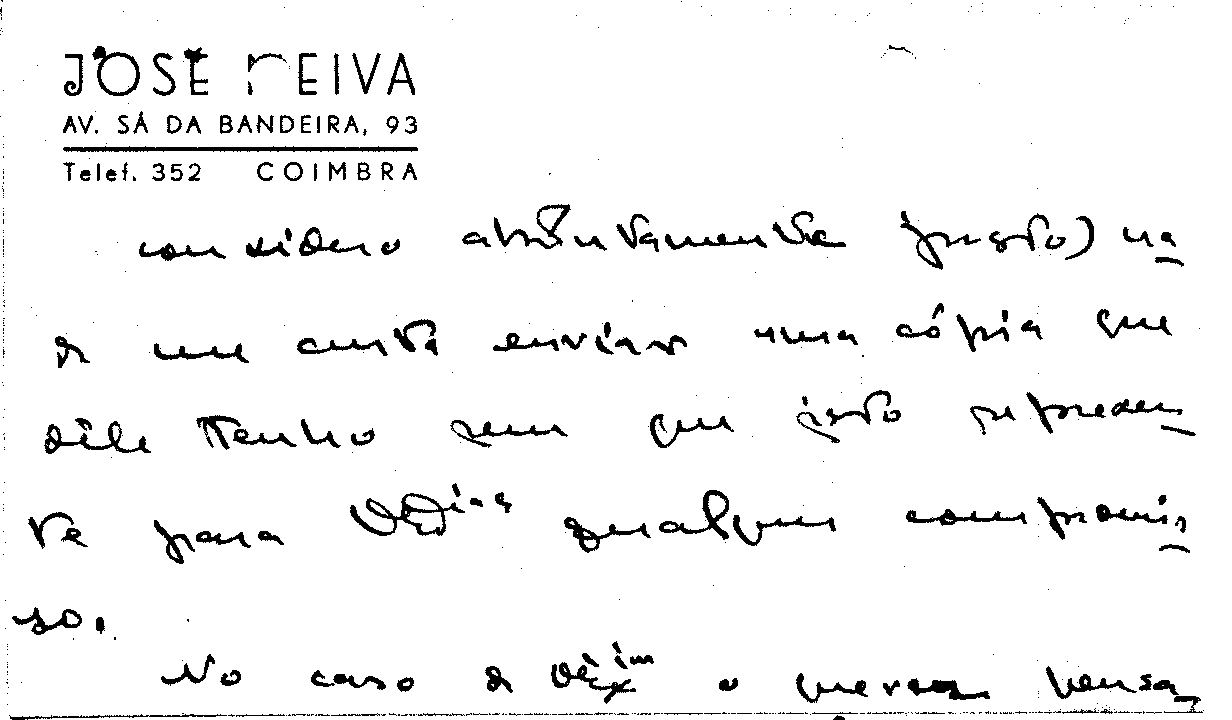 JOSÉ NEIVA
AV. SÁ DA BANDEIRA, 93
Telef. 352 COIMBRA
considero absolutamente justo) na
da me custa enviar uma cópia que
dele tenho sem que isto represen
te para qualquer compromis
so.
No caso de o pensa